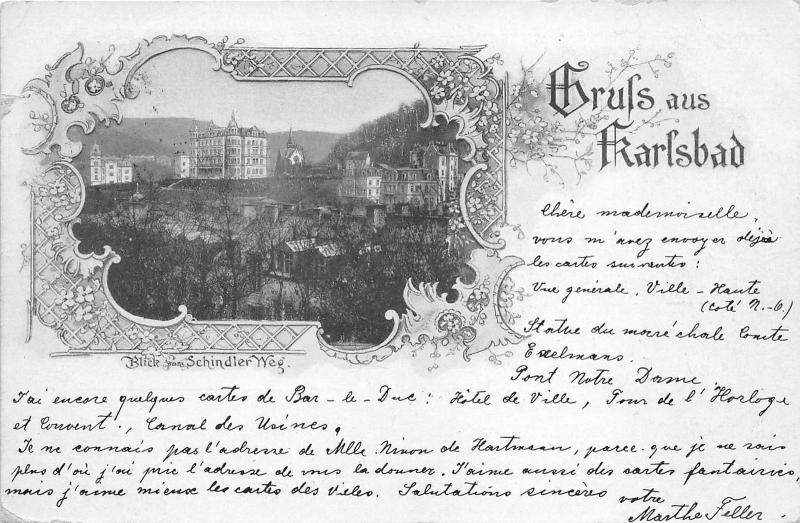 Gruss aus
Karlsbad
Blick vom Schindler Weg.
Chère mademoiselle,
vous m'avez envoyer déjà
les cartes suivantes :
Vue générale, Ville - Haute
(coté N.-O.)
Statue du maréchale Comte
Exelmans.
Pont Notre Dame
J'ai encore quelques cartes de Bar - le - Duc : Hôtel de Ville, Tour de l'Horloge
et Couvent., Canal des Usines.
Je ne connais pas l'adresse de Mlle. Ninon de Hartmann, parce que je ne sais
plus d'où j'ai pric l'adresse de vous la donner. J'aime aussi des cartes fantaisies,
mais j'aime mieux les cartes des Viles. Salutations sincères votre
Marthe Feller.